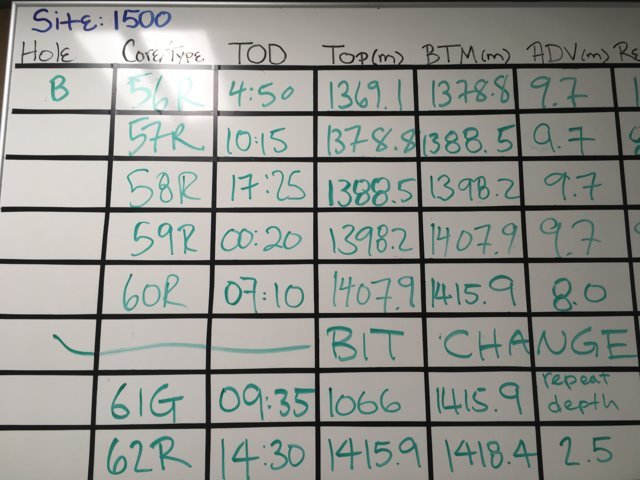 Site: 1500
Hole Core, Type TOD Top(m) BTM(m) ADV(m)
B 56R 4:50 1369.1 1378.8 9.7
57R 10:15 1378.8 1388.5 9.7
58R 17:25 1388.5 1398.2 9.7
59R 00:20 1398.2 1407.9 9.7
60R 07:10 1407.9 1415.9 8.0
BIT CHANGE
61G 09:35 1066 1415.9 repeat depth
62R 14:30 1415.9 1418.4 2.5